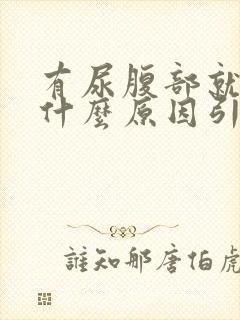 有尿腹部就
什麼原因引
誰知那唐伯虎